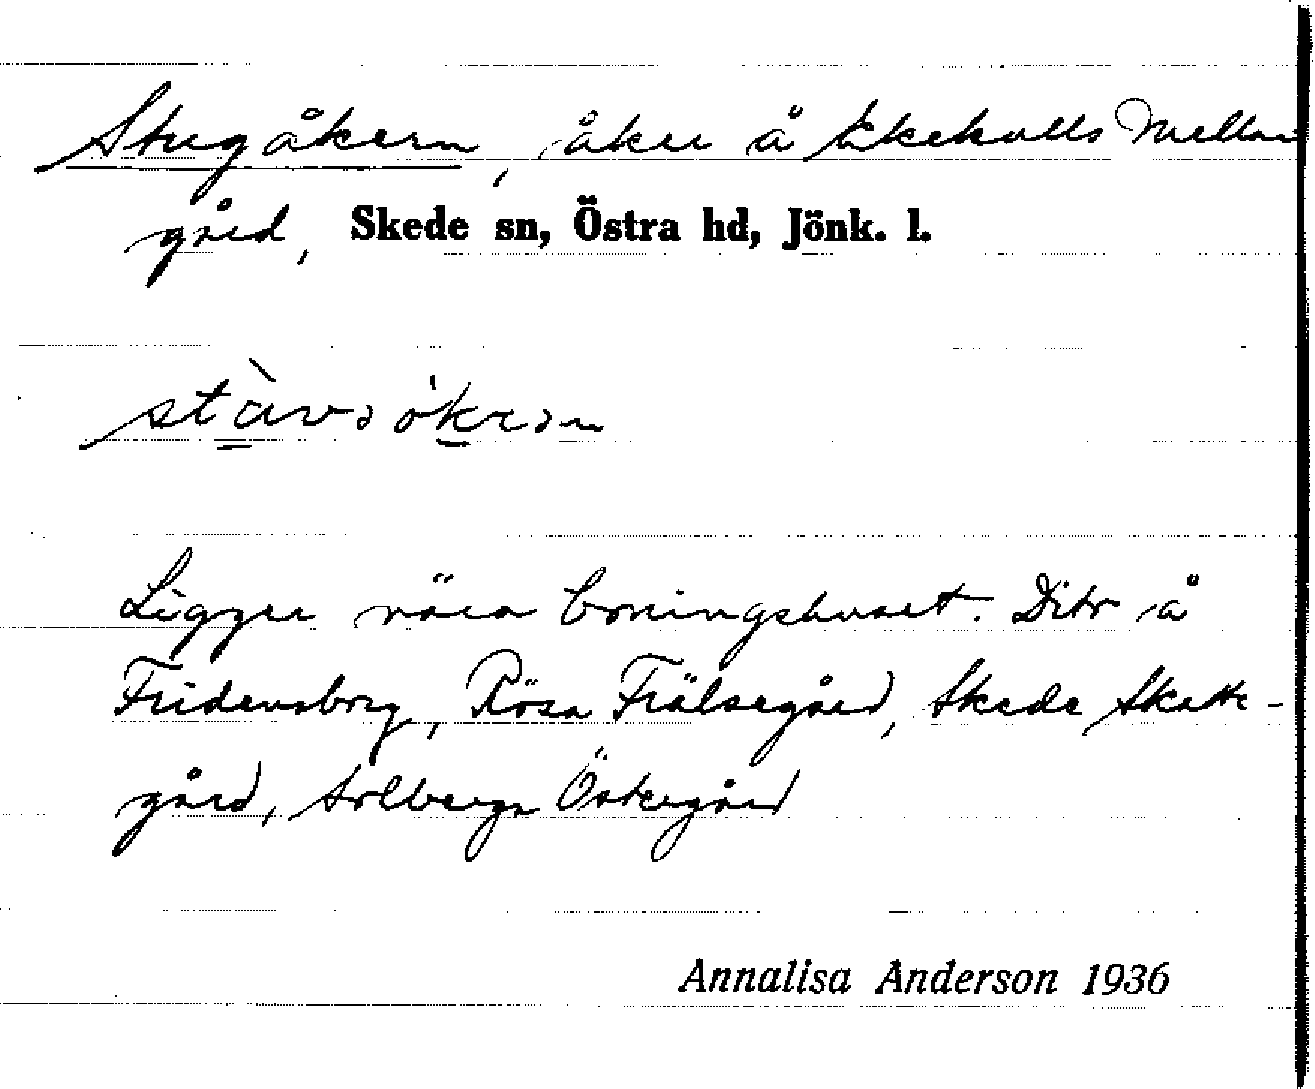 Stugåkern, åker å Ekekulls Mellan
gård, Skede sn, Östra hd, Jönk. l.
Ligger nära boningshuset. Dito å
Fridensborg, Rösa Frälsegård, Skede Skatte-
gård, Solberga Östergård
Annalisa Anderson 1936